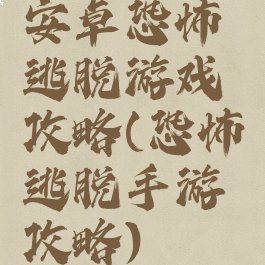 安卓恐怖
逃脱游戏
攻略(恐怖
逃脱手游
攻略)